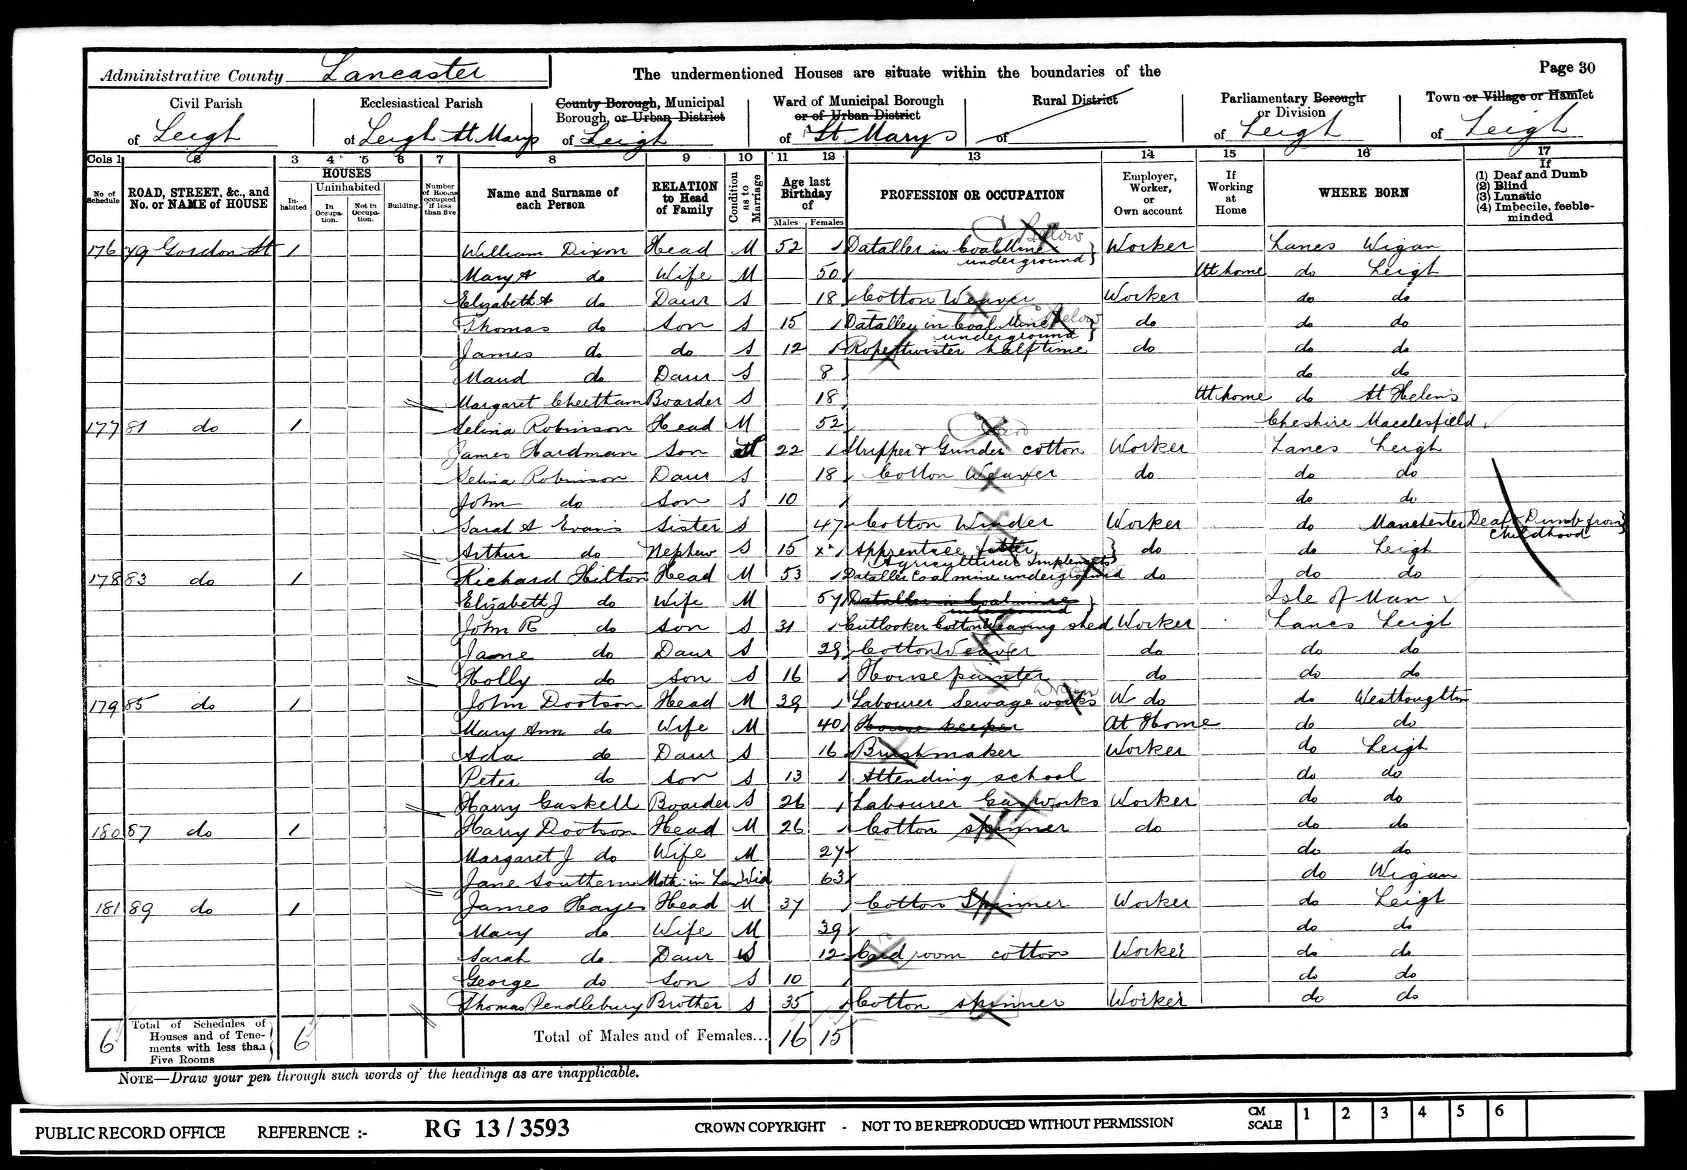 Administrative County Lancaster
The undermentioned Houses are situate within the boundaries of the
Page 30
Civil Parish of Leigh
Ecclesiastical Parish of Leigh St Marys
County Borough, Municipal Borough, or Urban District of Leigh
Ward of Municipal Borough or of Urban District of St Marys
Rural District of
Parliamentary Borough or Division of Leigh
Town or Village or Hamlet of Leigh
Cols 1 2 3 4 5 6 7 8 9 10 11 12 13 14 15 16 17
No. of Schedule
ROAD, STREET, &c., and No. or NAME of HOUSE
HOUSES
Inhabited
Uninhabited
In Occupation.
Not in Occupation.
Building.
Number of Rooms occupied if less than five
Name and Surname of each Person
RELATION to Head of Family
Condition as to Marriage
Age last Birthday of
Males Females
PROFESSION OR OCCUPATION
Employer, Worker, or Own account
If Working at Home
WHERE BORN
If (1) Deaf and Dumb (2) Blind (3) Lunatic (4) Imbecile, feeble-minded
176 79 Gordon St 1 William Dixon Head M 52 Dataller in Coal Mine underground Worker Lancs Wigan
Mary A do Wife M 50 At home do Leigh
Elizabeth A do Daur S 18 Cotton Weaver Worker do do
Thomas do Son S 15 Dataller in Coal Mine underground do do do
James do do S 12 Rope twister half time do do do
Maud do Daur S 8 do do
Margaret Cheetham Boarder S 18 At home do St Helens
177 81 do 1 Selina Robinson Head M 52 Cheshire Macclesfield
James Hardman Son 22 Stripper & Grinder cotton Worker Lancs Leigh
Selina Robinson Daur S 18 Cotton Weaver do do do
John do Son S 10 do do
Sarah A Evans Sister S 47 Cotton Winder Worker do Manchester Deaf & Dumb from childhood
Arthur do Nephew S 15 Apprentice fitter Agricultural Implements do do Leigh
178 83 do 1 Richard Hilton Head M 53 Dataller Coal mine underground do do do
Elizabeth J do Wife M 57 Dataller in Coal mine underground Isle of Man
John R do Son S 31 Cutlooker Cotton Weaving shed Worker Lancs Leigh
Jane do Daur S 29 Cotton Weaver do do do
Holly do Son S 16 House painter do do do
179 85 do 1 John Dootson Head M 39 Labourer Sewage works W do do Westhoughton
Mary Ann do Wife M 40 House keeper At Home do do
Ada do Daur S 16 Brushmaker Worker do Leigh
Peter do Son S 13 Attending school do do
Harry Gaskell Boarder S 26 Labourer Gas works Worker do do
180 87 do 1 Harry Dootson Head M 26 Cotton spinner do do do
Margaret J do Wife M 27 do do
Jane Southern Moth: in Law Wid 63 do Wigan
181 89 do 1 James Hayes Head M 37 Cotton Spinner Worker do Leigh
Mary do Wife M 39 do do
Sarah do Daur S 12 Card room cotton Worker do do
George do Son S 10 do do
Thomas Pendlebury Brother S 35 Cotton spinner Worker do do
6 Total of Schedules of Houses and of Tenements with less than Five Rooms 6 Total of Males and of Females... 16 15
NOTE—Draw your pen through such words of the headings as are inapplicable.
PUBLIC RECORD OFFICE REFERENCE :- RG 13 / 3593 CROWN COPYRIGHT - NOT TO BE REPRODUCED WITHOUT PERMISSION CM SCALE 1 2 3 4 5 6